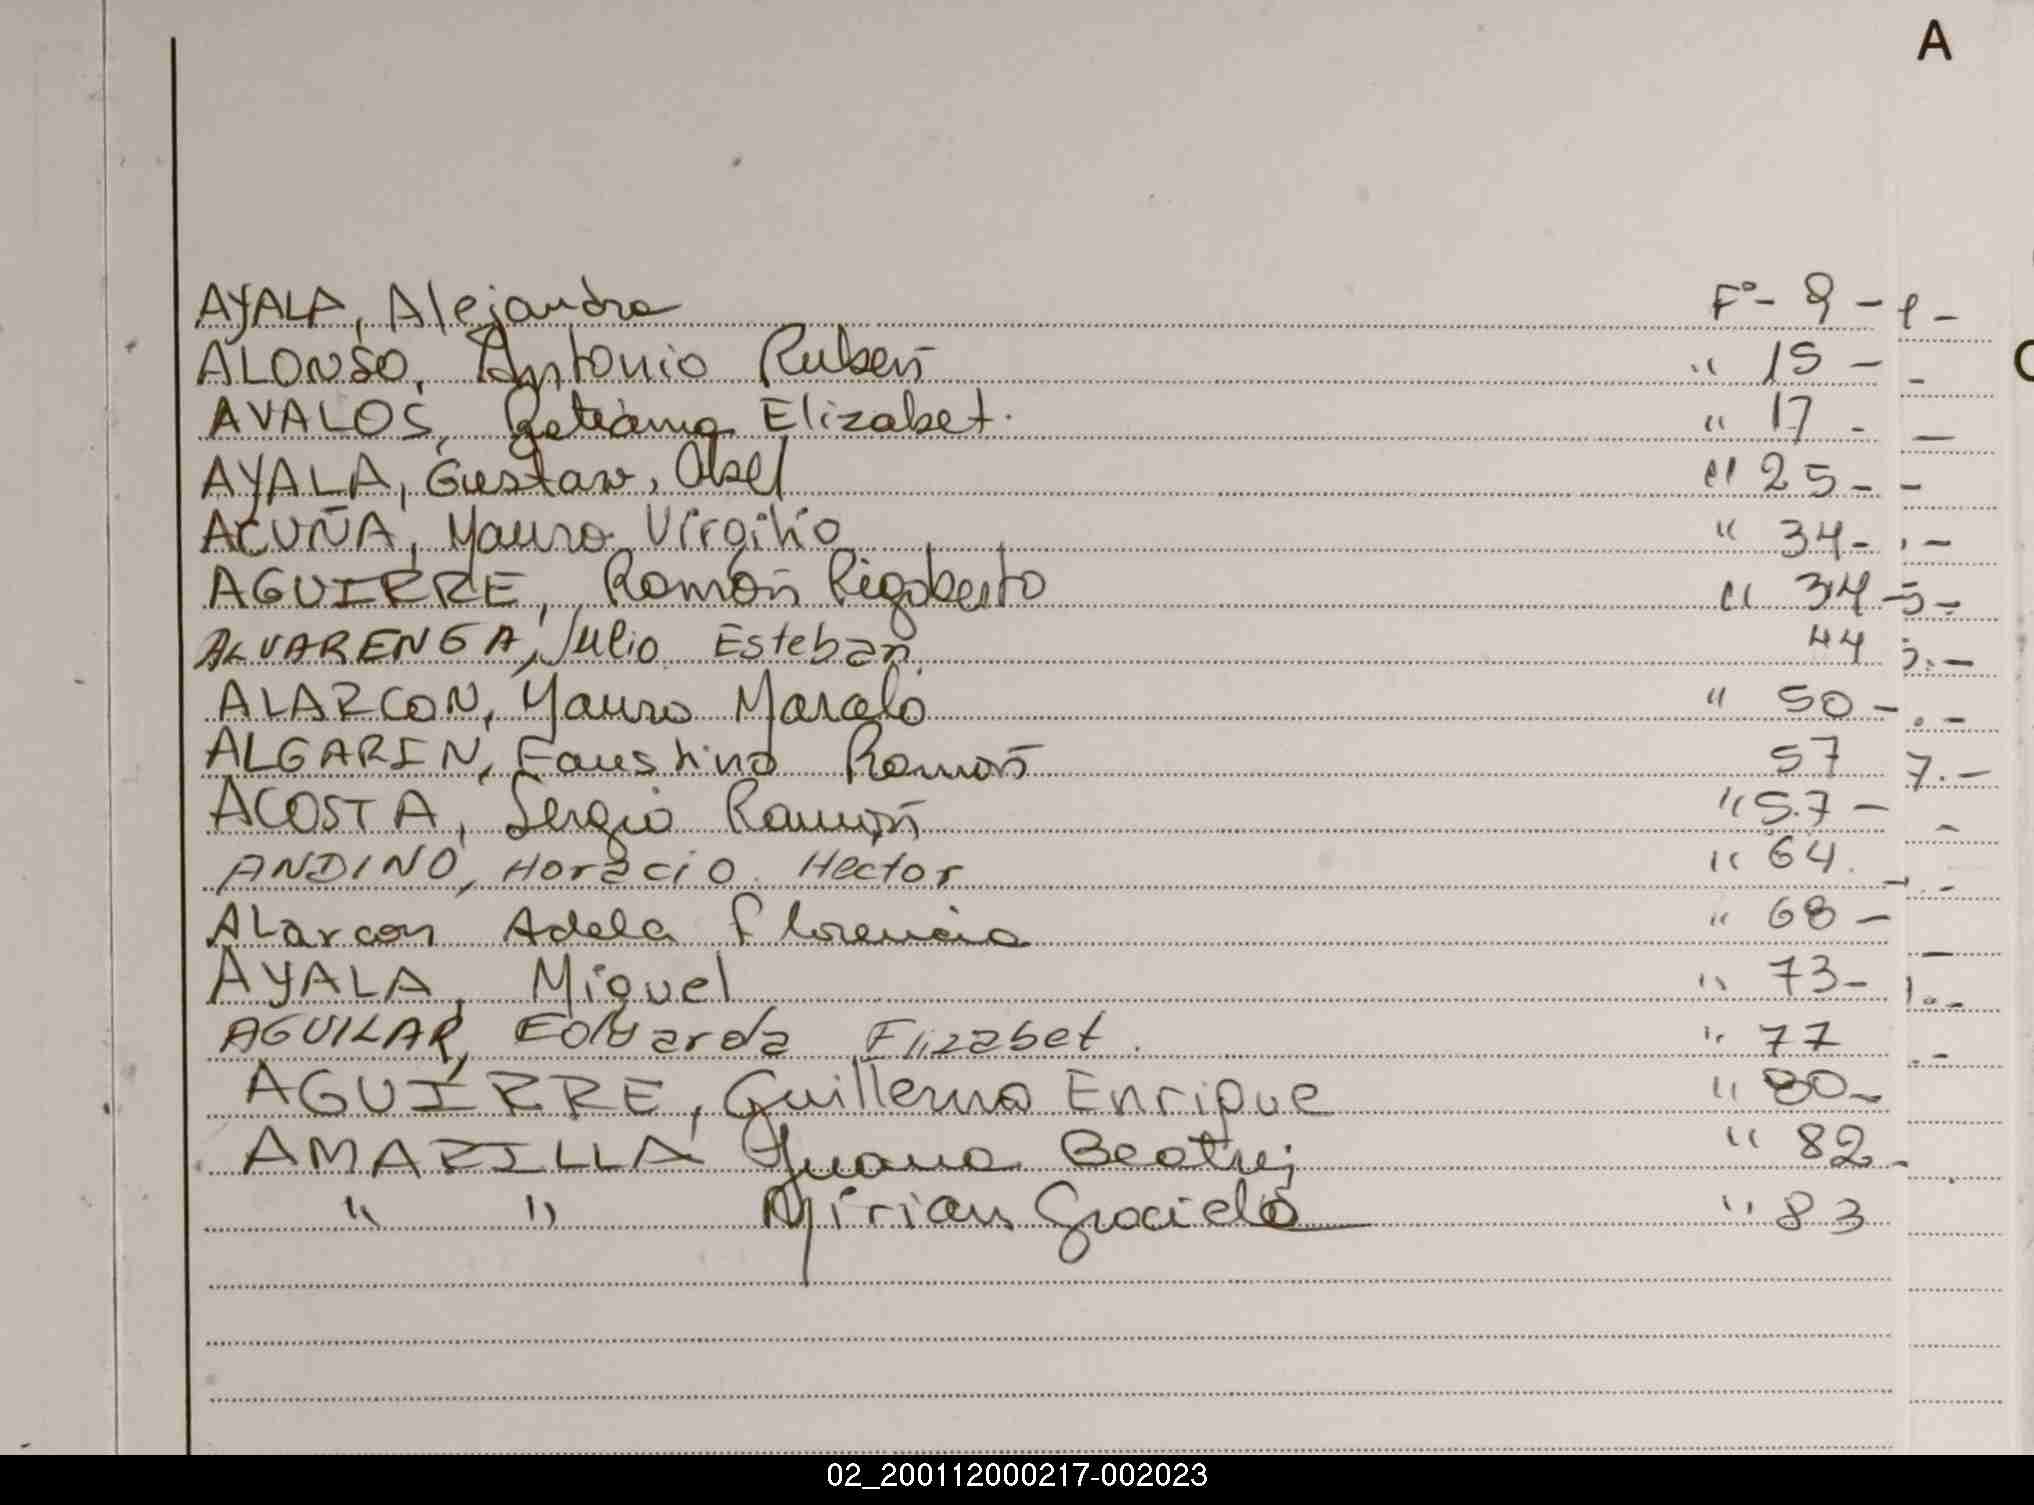 A
AYALA, Alejandra F°- 9 -
ALONSO, Antonio Ruben " 15 -
AVALOS, Elizabet. " 17 -
AYALA, Gustavo, Abel " 25 -
ACUÑA, Mauro Virgilio " 34 -
AGUIRRE, Ramón Rigoberto " 34 -
ALVARENGA, Julio Esteban. 44
ALARCON, Mauro Marcelo " 50 -
ALGARIN, Faustino Ramón 57
ACOSTA, Sergio Ramón " 57 -
ANDINO, Horacio Hector " 64.
ALarcon Adela Florencia " 68 -
AYALA, Miguel " 73 -
AGUILAR, Eduarda Elizabet. " 77
AGUIRRE, Guillermo Enrique " 80 -
AMARILLA Juana Beatriz " 82 -
" " Mirian Graciela " 83
02_200112000217-002023